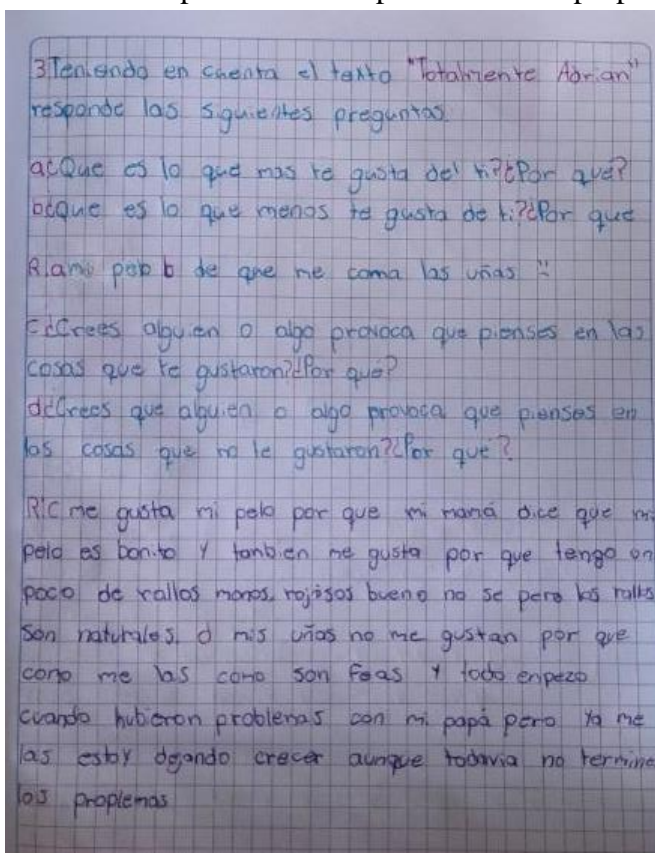 3 Teniendo en cuenta el texto "Totalmente Adrian"
responde las siguientes preguntas.
a¿Que es lo que mas te gusta de' ti?¿Por qué?
b¿Que es lo que menos te gusta de ti?¿Por que
R.a mi b de que me coma las uñas
c¿Crees alguien o algo provoca que pienses en las
cosas que te gustaron?¿Por que?
d¿Crees que alguien o algo provoca que pienses en
las cosas que no le gustaron?¿Por que?
R:C me gusta mi pelo por que mi mamá dice que mi
pelo es bonito y tanbien me gusta por que tengo un
poco de rallos monos, rojisos bueno no se pero los rallos
son naturales, d mis uñas no me gustan por que
como me las como son feas y todo enpezo
cuando hubieron problemas con mi papá pero ya me
las estoy dejando crecer aunque todavia no termine
los proplemas